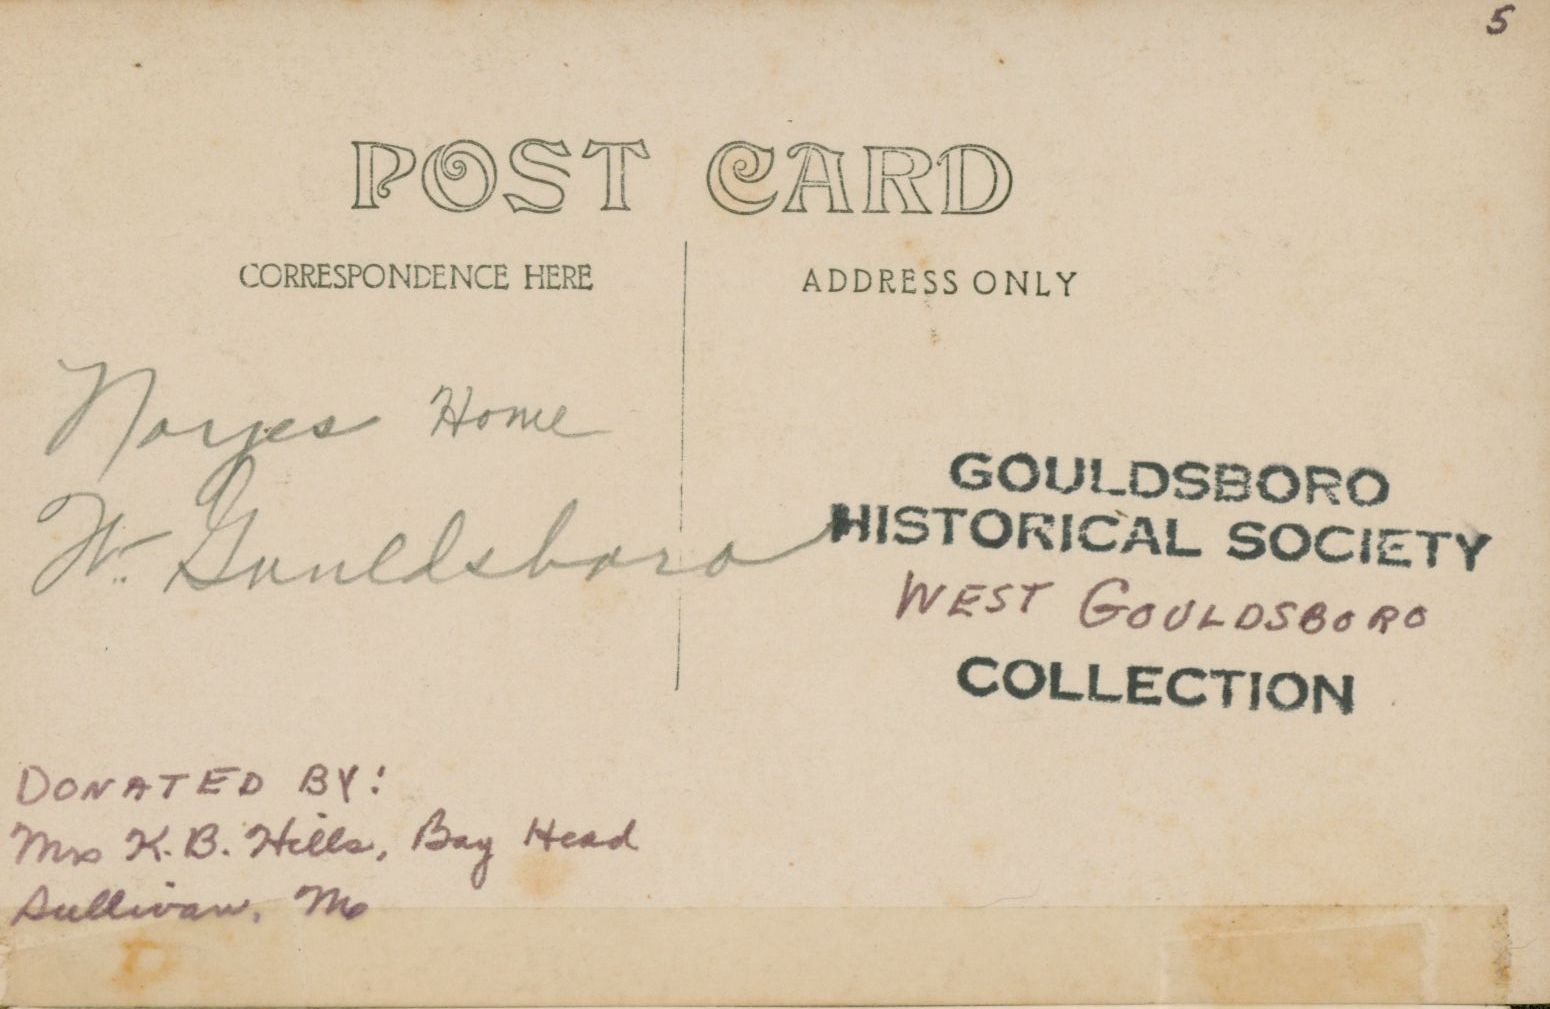 5
POST CARD
CORRESPONDENCE HERE
ADDRESS ONLY
Noyes Home
W. Gouldsboro
GOULDSBORO
HISTORICAL SOCIETY
WEST GOULDSBORO
COLLECTION
DONATED BY:
Mrs K. B. Hills, Bay Head
Sullivan, Me